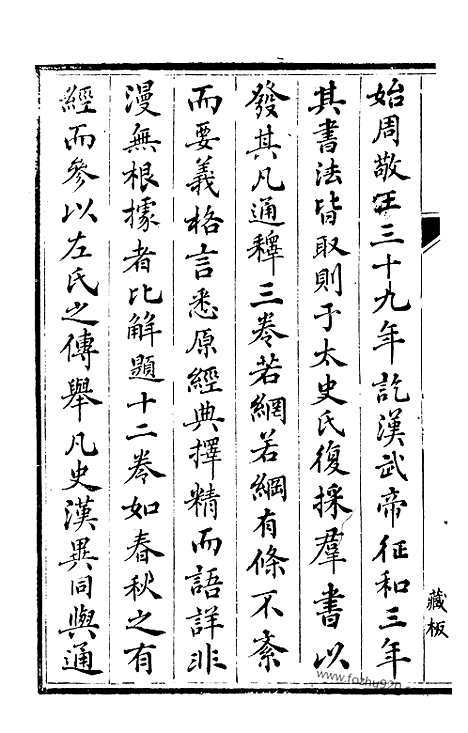 始周敬王三十九年訖漢武帝征和三年
其書法皆取則于太史氏復採羣書以
發其凡通釋三卷若網若綱有條不紊
而要義格言悉原經典擇精而語詳非
漫無根據者比解題十二卷如春秋之有
經而參以左氏之傳舉凡史漢異同與通
藏板
www.fozhu920